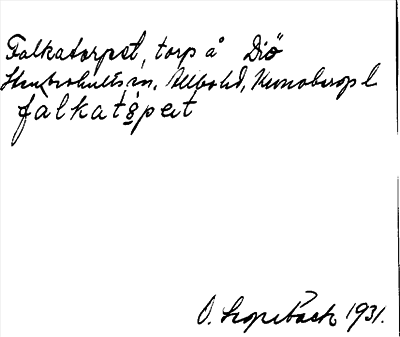 Falkatorpet, torp å Diö
Stenbrohults sn, Allbo hd, Kronobergs l
falkatorpet
O. 1931.